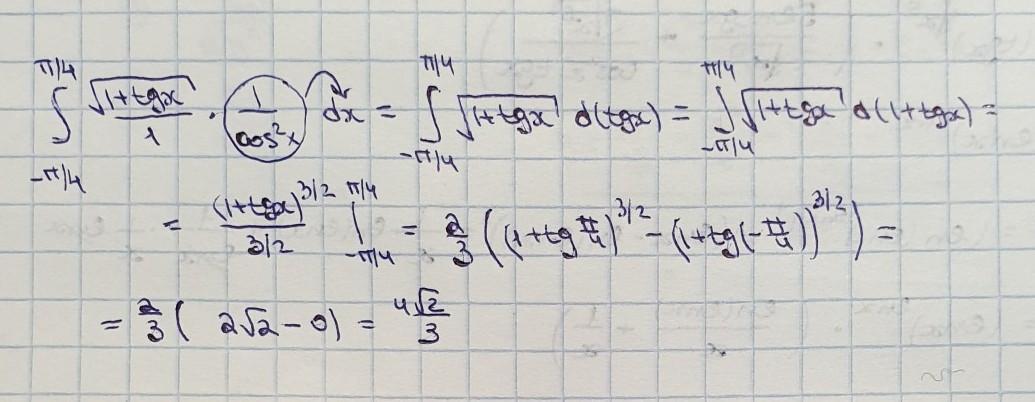 ∫_{-π/4}^{π/4} √(1+tgx)/1 · (1/cos²x) dx = ∫_{-π/4}^{π/4} √(1+tgx) d(tgx) = ∫_{-π/4}^{π/4} √(1+tgx) d(1+tgx) =
= (1+tgx)^{3/2}/(3/2) |_{-π/4}^{π/4} = 2/3 ((1+tg π/4)^{3/2} - (1+tg(-π/4))^{3/2}) =
= 2/3 ( 2√2 - 0) = 4√2/3